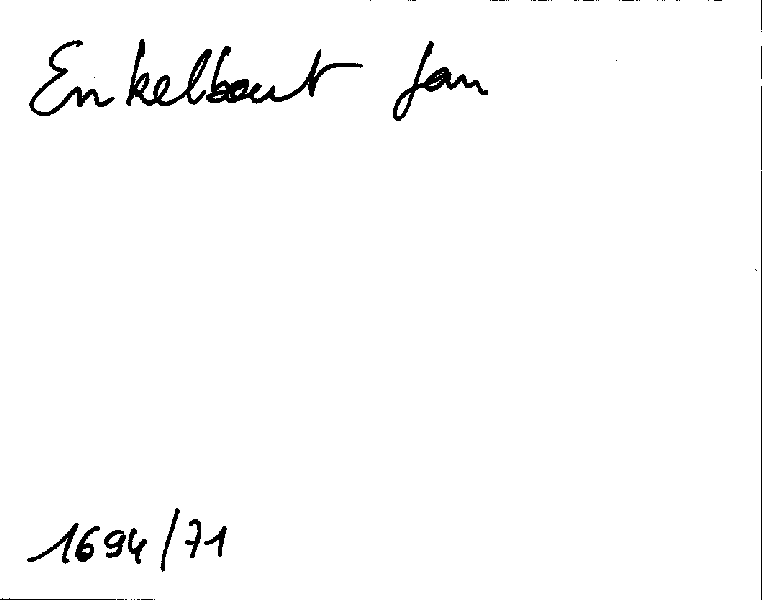 Enkelbout Jan
1694/71